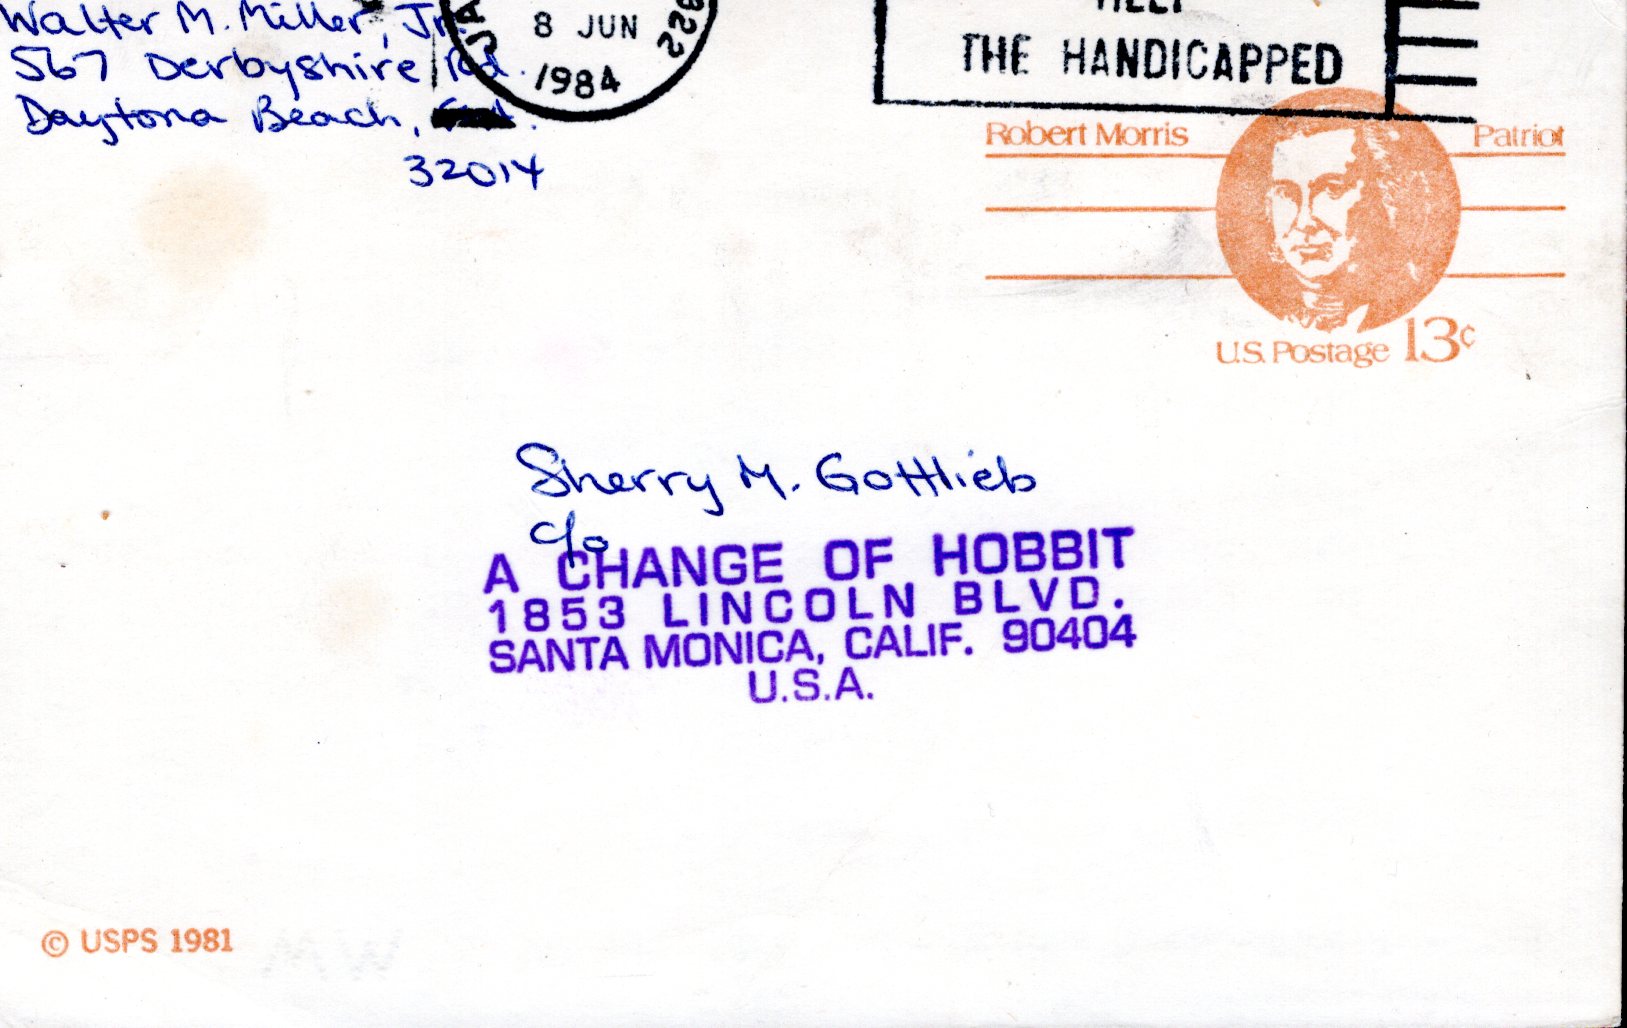 Walter M. Miller, Jr.
567 Derbyshire Rd.
Daytona Beach,
32014
JA
822
8 JUN
1984
HELP
THE HANDICAPPED
Robert Morris
Patriot
U.S. Postage 13c
Sherry M. Gottlieb
c/o
A CHANGE OF HOBBIT
1853 LINCOLN BLVD.
SANTA MONICA, CALIF. 90404
U.S.A.
© USPS 1981